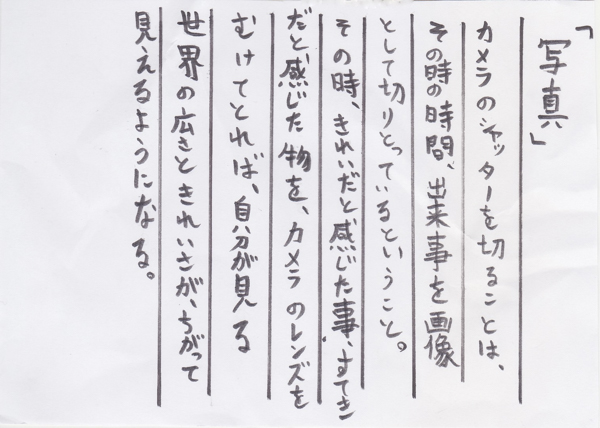 「写真」
カメラのシャッターを切ることは、
その時の時間、出来事を画像
として切りとっているということ。
その時、きれいだと感じた事、すてき
だと感じた物を、カメラのレンズを
むけてとれば、自分が見る
世界の広さときれいさが、ちがって
見えるようになる。